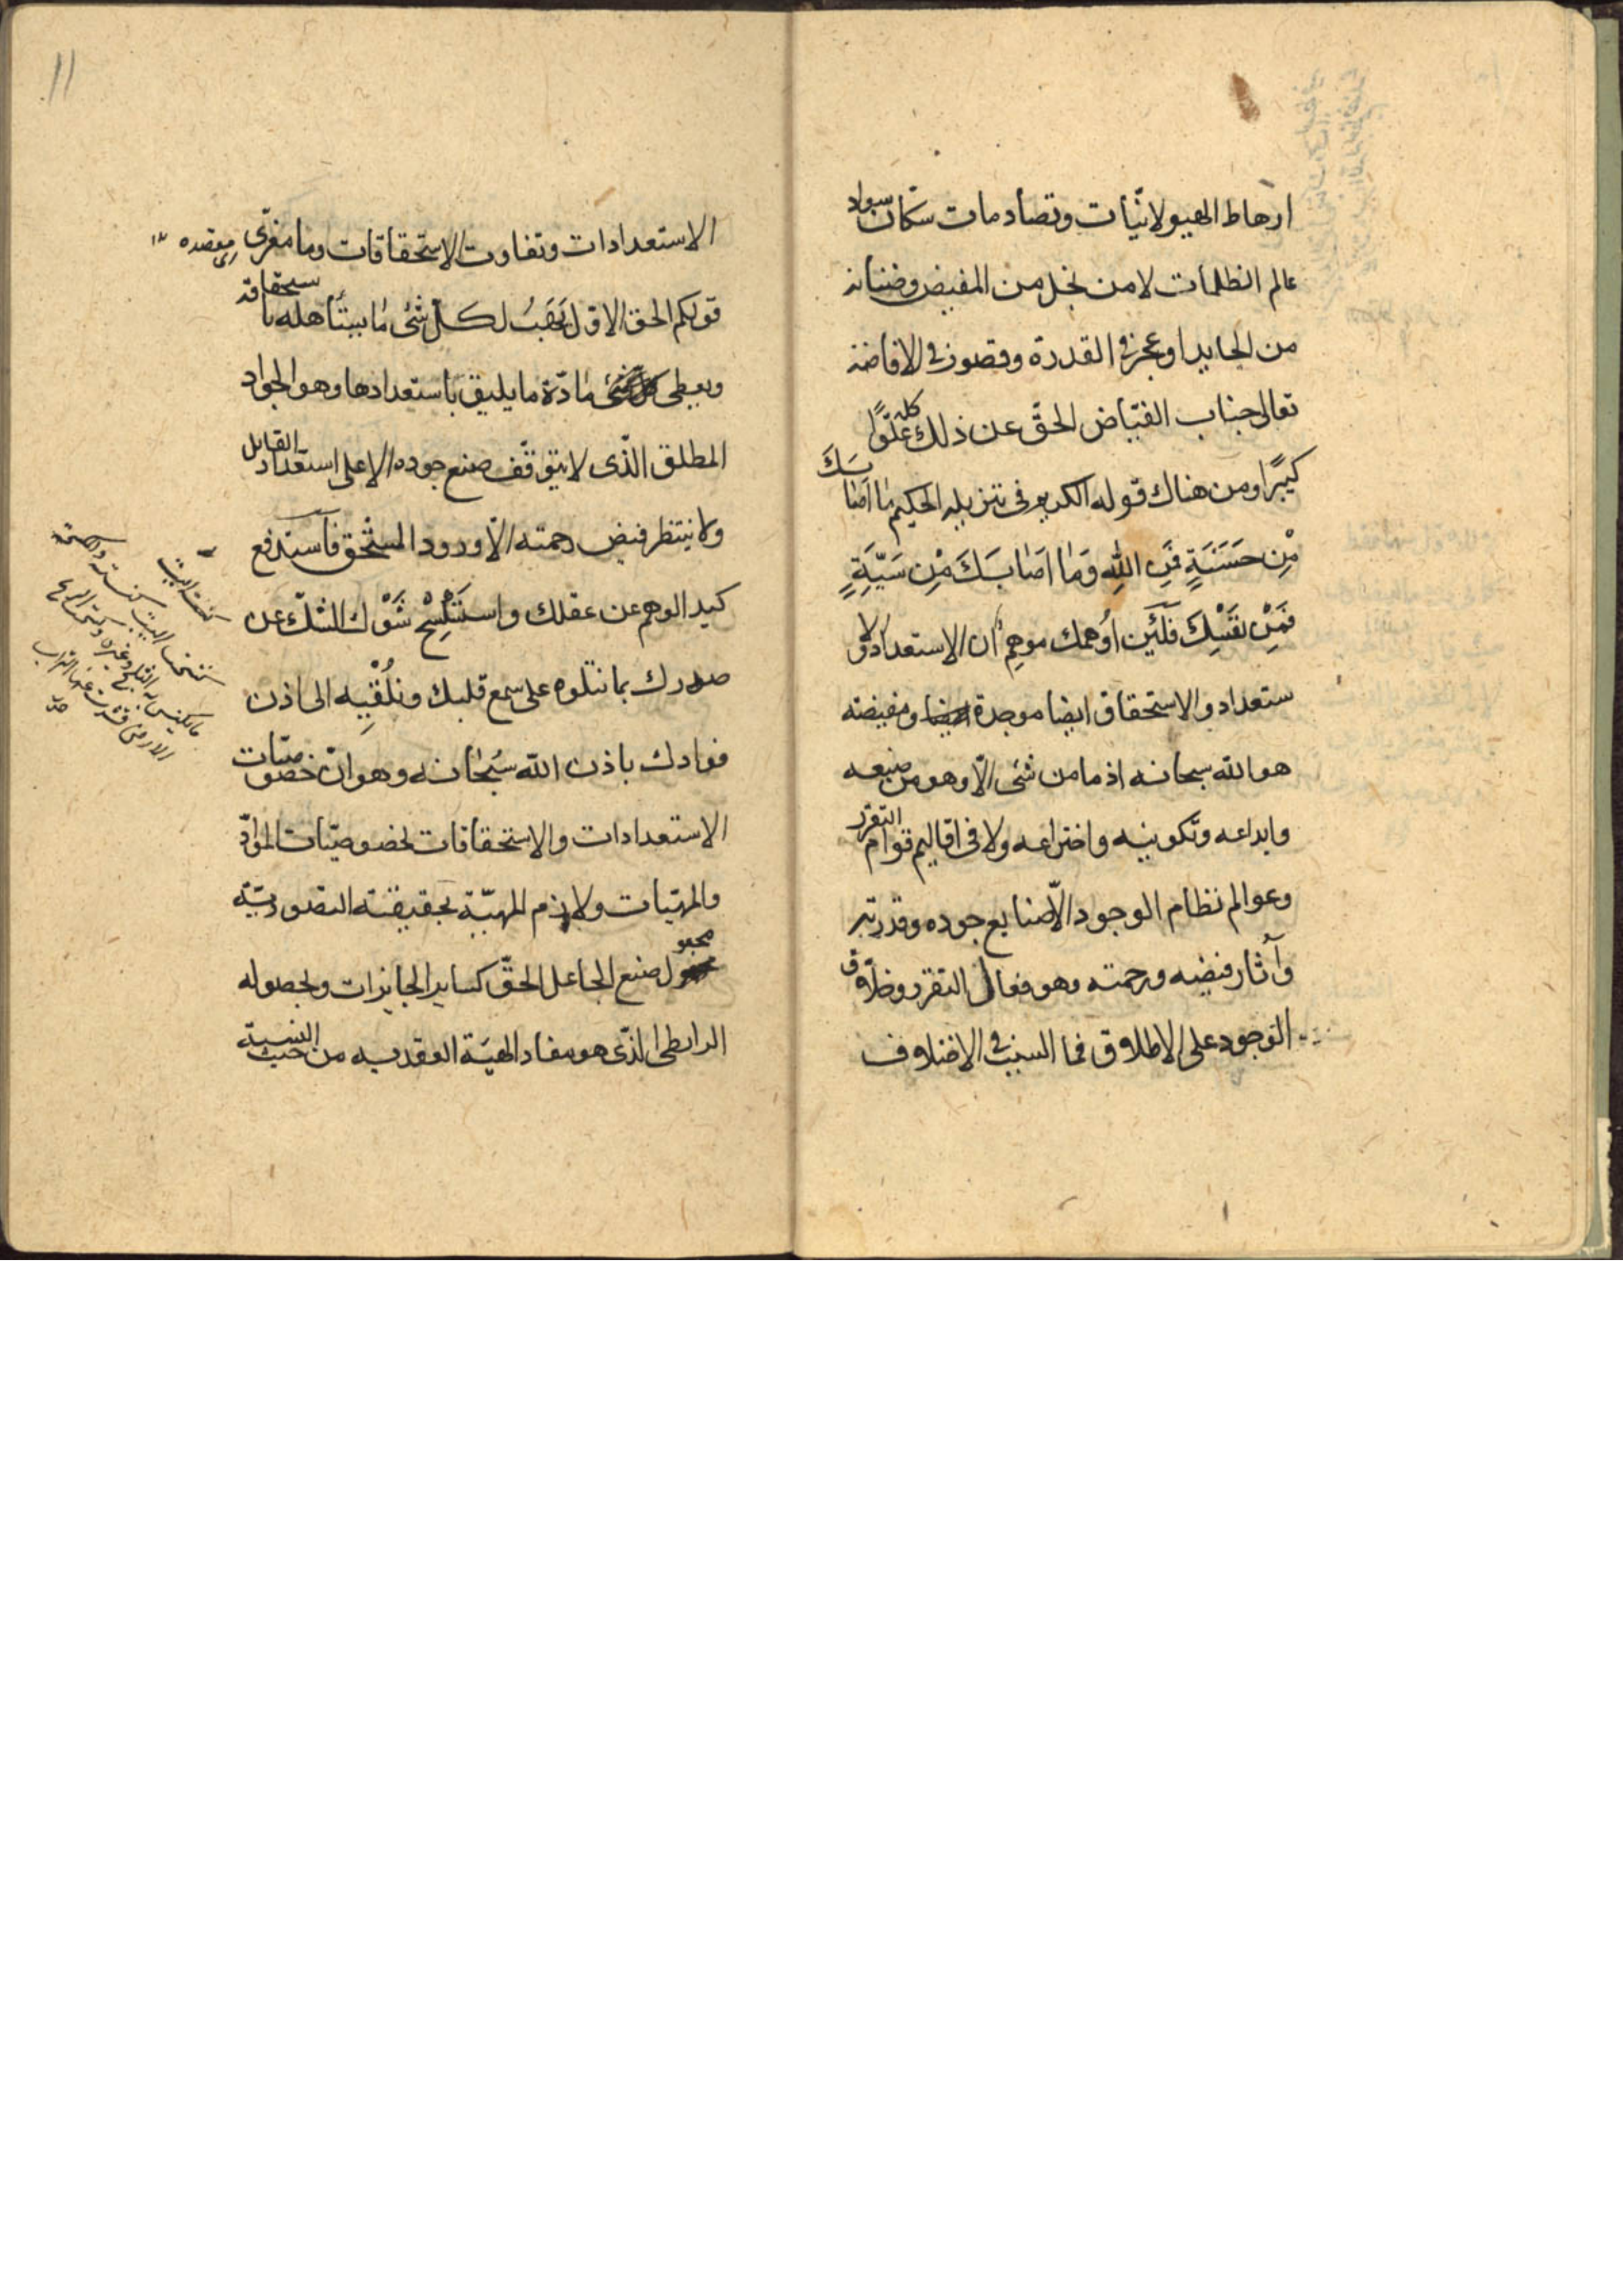 ارهاط الهيولانيّات وتصادمات سكّان سواد
عالم الظلمات لا من بخل من المفيض وضنانة
من الجايد او عجز في القدرة وقصور في الافاضة
تعالى جناب الفيّاض الحقّ عن ذلك كله علوًّا
كبيرًا ومن هناك قوله الكريم في تنزيله الحكيم ما اصابَكَ
مِنْ حَسَنَةٍ فَمِنَ اللهِ وَمَا اَصَابَكَ مِنْ سَيِّئَةٍ
فَمِنْ نَفْسِكَ فلئن اوهمك موهم ان الاستعداد والا
ستعداد والاستحقاق ايضا موجدة ومفيضه
هو الله سبحانه اذ ما من شئ الّا وهو من صنيعه
وابداعه وتكوينه واختراعه ولا في اقاليم قوام التقرر
وعوالم نظام الوجود الّا صنايع جوده وقدرته
وآثار فيضه ورحمته وهو فعال التقرر وخلّاق
الوجود على الاطلاق فما السبب في الاختلاف
11
الاستعدادات وتفاوت الاستحقاقات وما مغزى
قولكم الحق الاوّل يَهَبُ لكلّ شئ ما يستأهله باستحقاقه
ويعطى كل مادّة ما يليق باستعدادها وهو الجواد
المطلق الّذى لا يتوقّف صنع جوده الا على استعداد القابل
ولا ينتظر فيض رحمته الّا ورود المستحق فاستدفع
كيد الوهم عن عقلك واستكسح شَوْك الشكّ عن
صدرك بما نتلوه على سمع قلبك ونلقيه الى اذن
فوادك باذن الله سبحانه وهو ان خصوصيّات
الاستعدادات والاستحقاقات لخصوصيّات الموادّ
والمهيّات ولازم المهيّة بحقيقته التصوريّة
مجعول صنع الجاعل الحقّ كساير الجايزات وبحصوله
الرابطى الّذى هو مفاد الهيئة العقدية من حيث النسبة
اى مقصده ١٢
كسحت البيت
كنسته